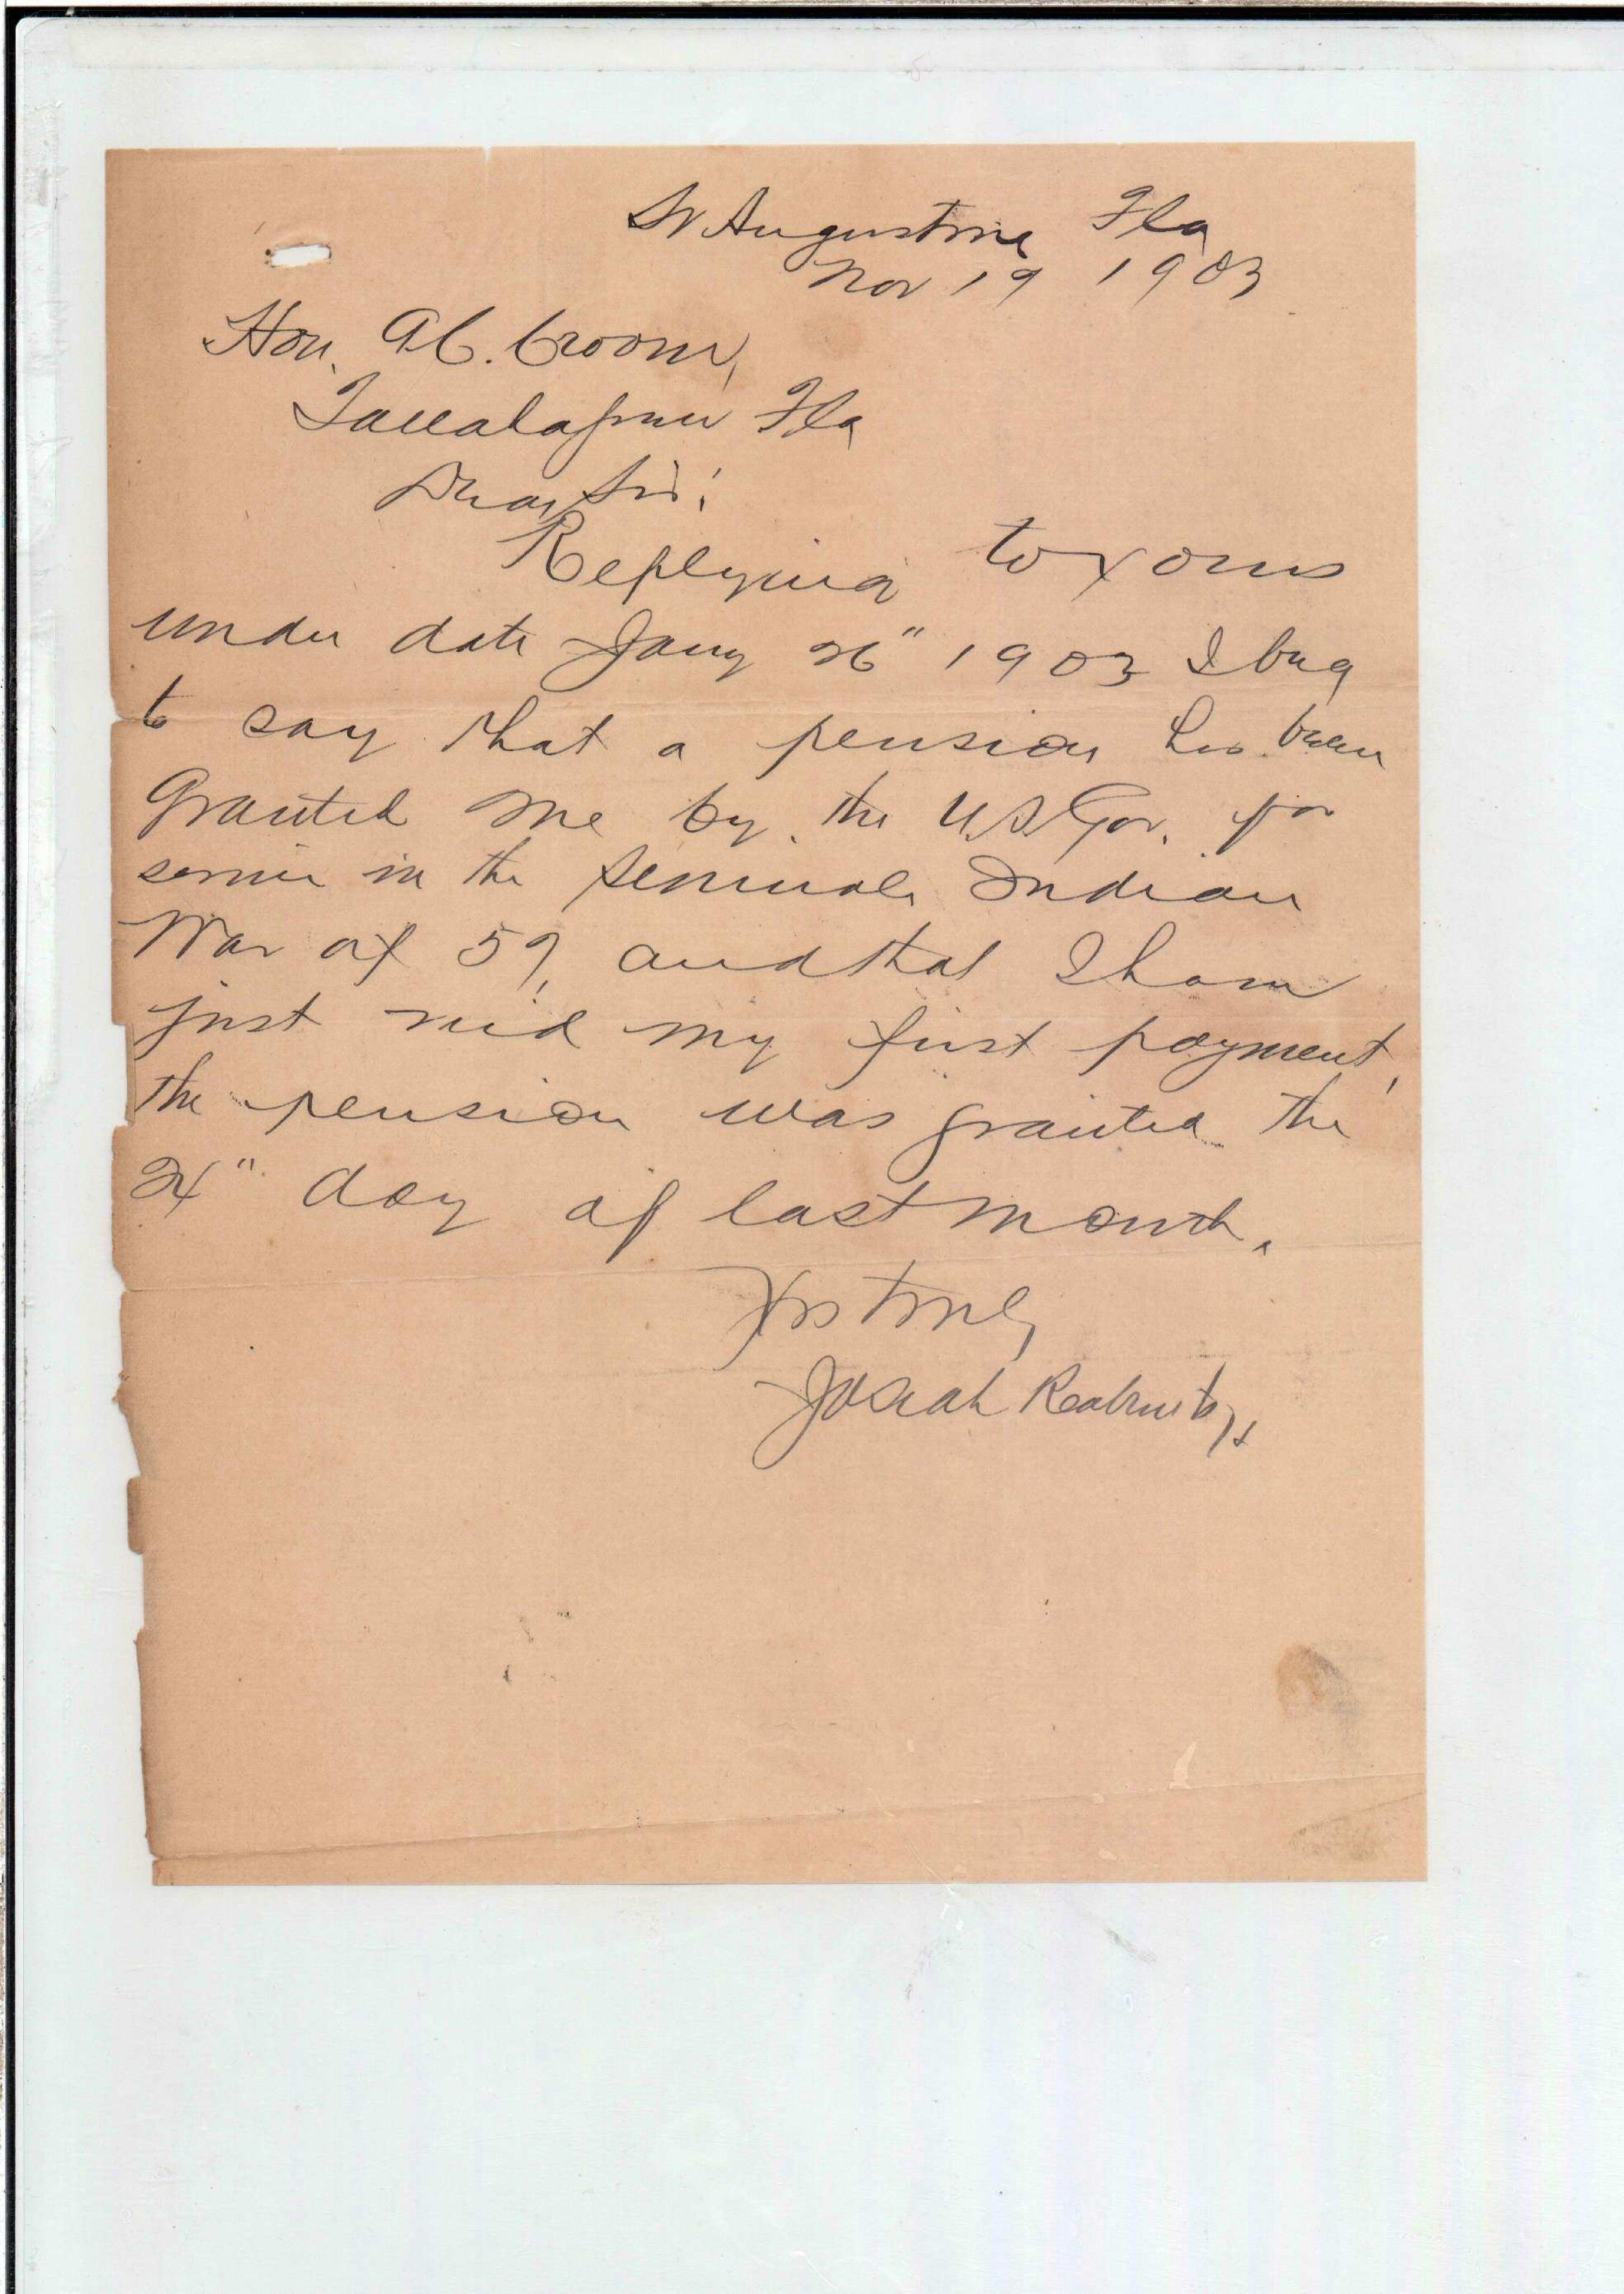 St Augustine Fla
Nov 19 1903
Hon. A C. Croom,
Tallahassee Fla
Dear Sir:
Replying to yours
under date Jany 26" 1903 I beg
to say that a pension has been
Granted me by the U.S. Gov. for
service in the Seminole Indian
War of 57, and that I have
just recd my first payment,
the pension was granted the
24" day of last month.
Yrs truly
Josiah